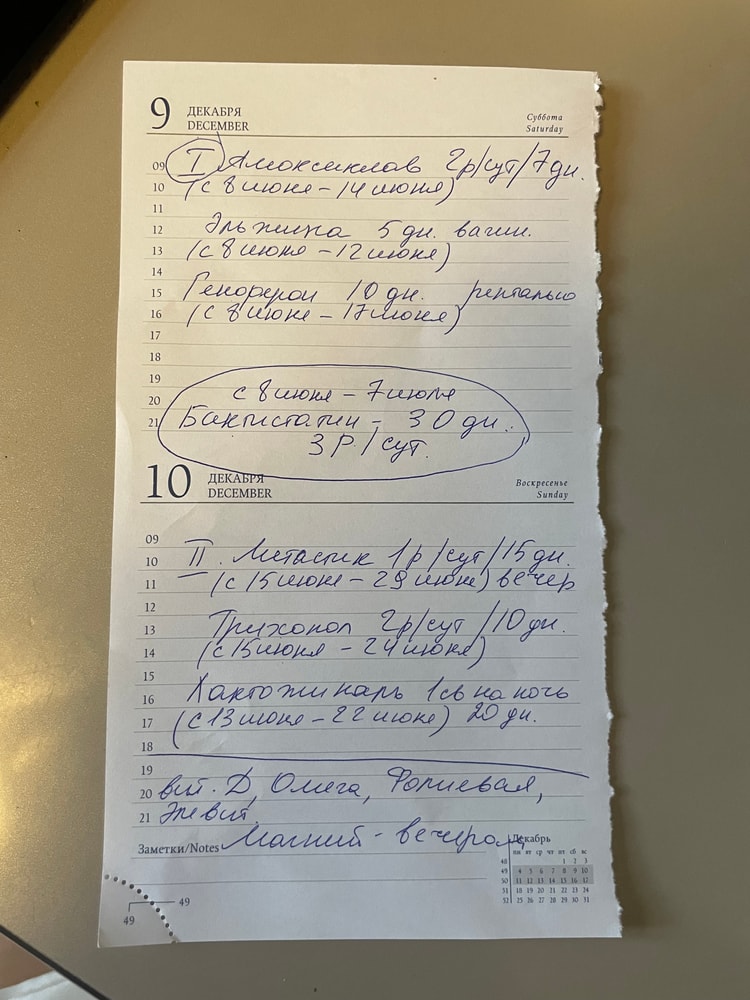 9 ДЕКАБРЯ Суббота
DECEMBER Saturday
09 I Амоксиклав 2р/сут/7дн.
10 (с 8 июня – 14 июня)
11
12 Эльжина 5 дн. вагин.
13 (с 8 июня – 12 июня)
14
15 Генферон 10 дн. ректально
16 (с 8 июня – 17 июня)
17
18
19
20 с 8 июня – 7 июля
21 Бактистатин – 30 дн.
3 Р/сут.
10 ДЕКАБРЯ Воскресенье
DECEMBER Sunday
09
10 II. 1р/сут/15 дн.
11 (с 15 июня – 29 июня) вечер
12
13 Трихопол 2р/сут/10 дн.
14 (с 15 июня – 24 июня)
15
16 Лактожиналь 1 св на ночь
17 (с 13 июня – 22 июня) 20 дн.
18
19
20 вит. Д, Омега, Фолиевая,
21 Элевит.
Заметки/Notes Магний – вечером
Декабрь
пн вт ср чт пт сб вс
48 1 2 3
49 4 5 6 7 8 9 10
50 11 12 13 14 15 16 17
51 18 19 20 21 22 23 24
52 25 26 27 28 29 30 31
49
49